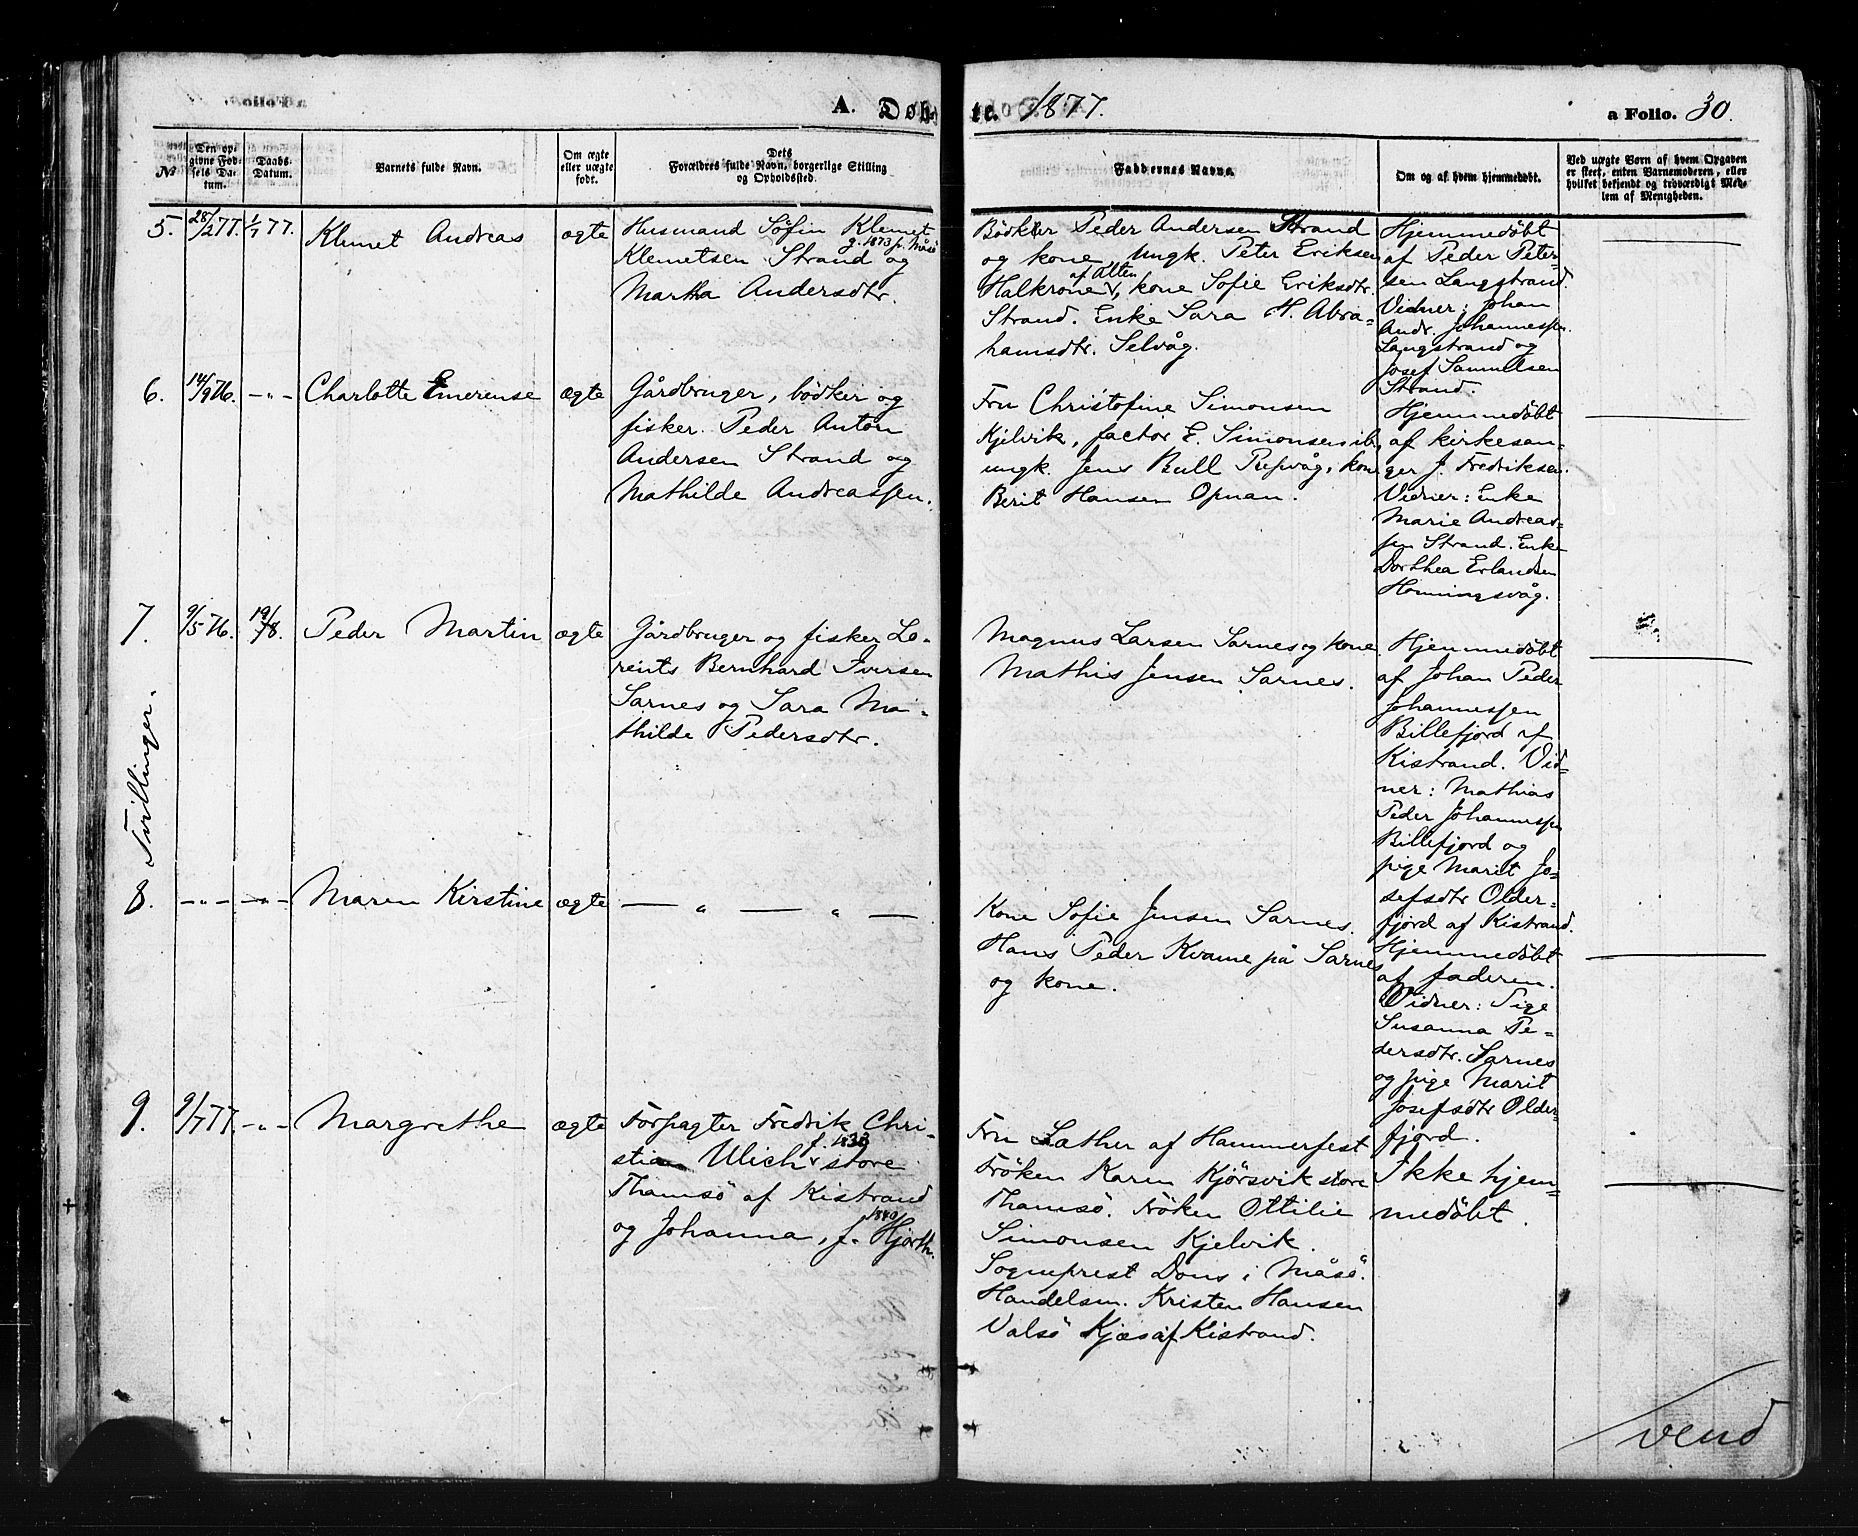 A. Døb-
te. 1877.
a Folio. 30.
№
Den op-
givne Fød-
sels Da-
tum.
Daabs-
Datum.
Varnets fulde Navn.
Om ægte
eller uægte
født.
Dets
Forældres fulde Navn, borgerlige Stilling
og Opholdssted.
Faddernes Navne.
Om og af hvem hjemmedøbt.
Ved uægte Børn af hvem Opgaven
er skeet, enten Barnemoderen, eller
hvilket bekjendt og troværdigt Med-
lem af Menigheden.
5.
28/2 77.
1/7 77.
Klemet Andreas
ægte
Husmand Söfin Klemet
g. 1873 fr. Måsö
Klemetsen Strand og
Martha Andersdtr.
Bödker Peder Andersen Strand
og kone, ungk. Peter Eriksen
af Alten
Halkrone, kone Sofie Eriksdtr.
Strand. Enke Sara H. Abra-
hamsdtr. Selvåg.
Hjemmedöbt
af Peder Peter-
sen Langstrand.
Vidner: Johan
Andr. Johannessen
Langstrand og
Josef Samuelsen
Strand.
6.
14/9 76.
- " -
Charlotte Emerense
ægte
Gårdbruger, bödker og
fisker. Peder Anton
Andersen Strand og
Mathilde Andreassen.
Fru Christofine Simonsen
Kjelvik, factor E. Simonsen ib.
ungk. Jens Bull Repvåg, kone
Berit Hansen Opnan.
Hjemmedöbt
af kirkesan-
ger J. Fredriksen.
Vidner: Enke
Marie Andreas-
sen Strand. Enke
Dorthea Erlandsen
Honningsvåg.
7.
9/5 76.
19/8.
Peder Martin
ægte
Gårdbruger og fisker Lo-
rents Bernhard Iversen
Sarnes og Sara Ma-
thilde Pedersdtr.
Magnus Larsen Sarnes og kone
Mathis Jensen Sarnes.
Hjemmedöbt
af Johan Peder
Johannessen
Billefjord af
Kistrand. Vid-
ner: Mathias
Peder Johannessen
Billefjord og
pige Marit Jo-
sefsdtr Older-
fjord af Kistrand.
Tvillinger.
8.
- " -
- " -
Maren Kirstine
ægte
— " — " —
Kone Sofie Jensen Sarnes.
Hans Peder Kvame på Sarnes
og kone.
Hjemmedöbt
af faderen.
Vidner: Pige
Susanna Pe-
dersdtr. Sarnes
og pige Marit
Josefsdtr Older-
fjord.
9.
9/7 77.
- " -
Margrethe
ægte
Forpagter Fredrik Chri-
f. 1833
stian Ulich store
Thamsö af Kistrand
1840
og Johanna, f. Hjorth.
Fru Lather af Hammerfest
Fröken Karen Kjörsvik store
Thamsö. Fröken Ottilie
Simonsen Kjelvik.
Sogneprest Dons i Måsö.
Handelsm. Kristen Hansen
Valsö Kjæs af Kistrand.
Ikke hjem-
medöbt.
vend